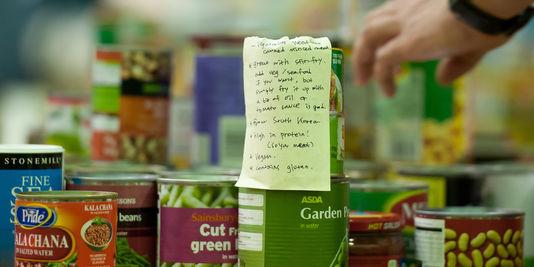 canned minced meat
• Great with stir-fry.
add veg/seafood
if you want, but
simply fry it up with
a bit of oil or
tomato sauce is good.
• from South Korea
• high in protein!
(soya meat)
• Vegan.
• contains gluten.
STONEMILL
FINE
SEA
Pride
KALA CHANA
LA CHANA
IN SALTED WATER
KALA CHANA
Sainsbury's
Cut
green
in water
ASDA
Garden Pe
in water
HOT SALSA